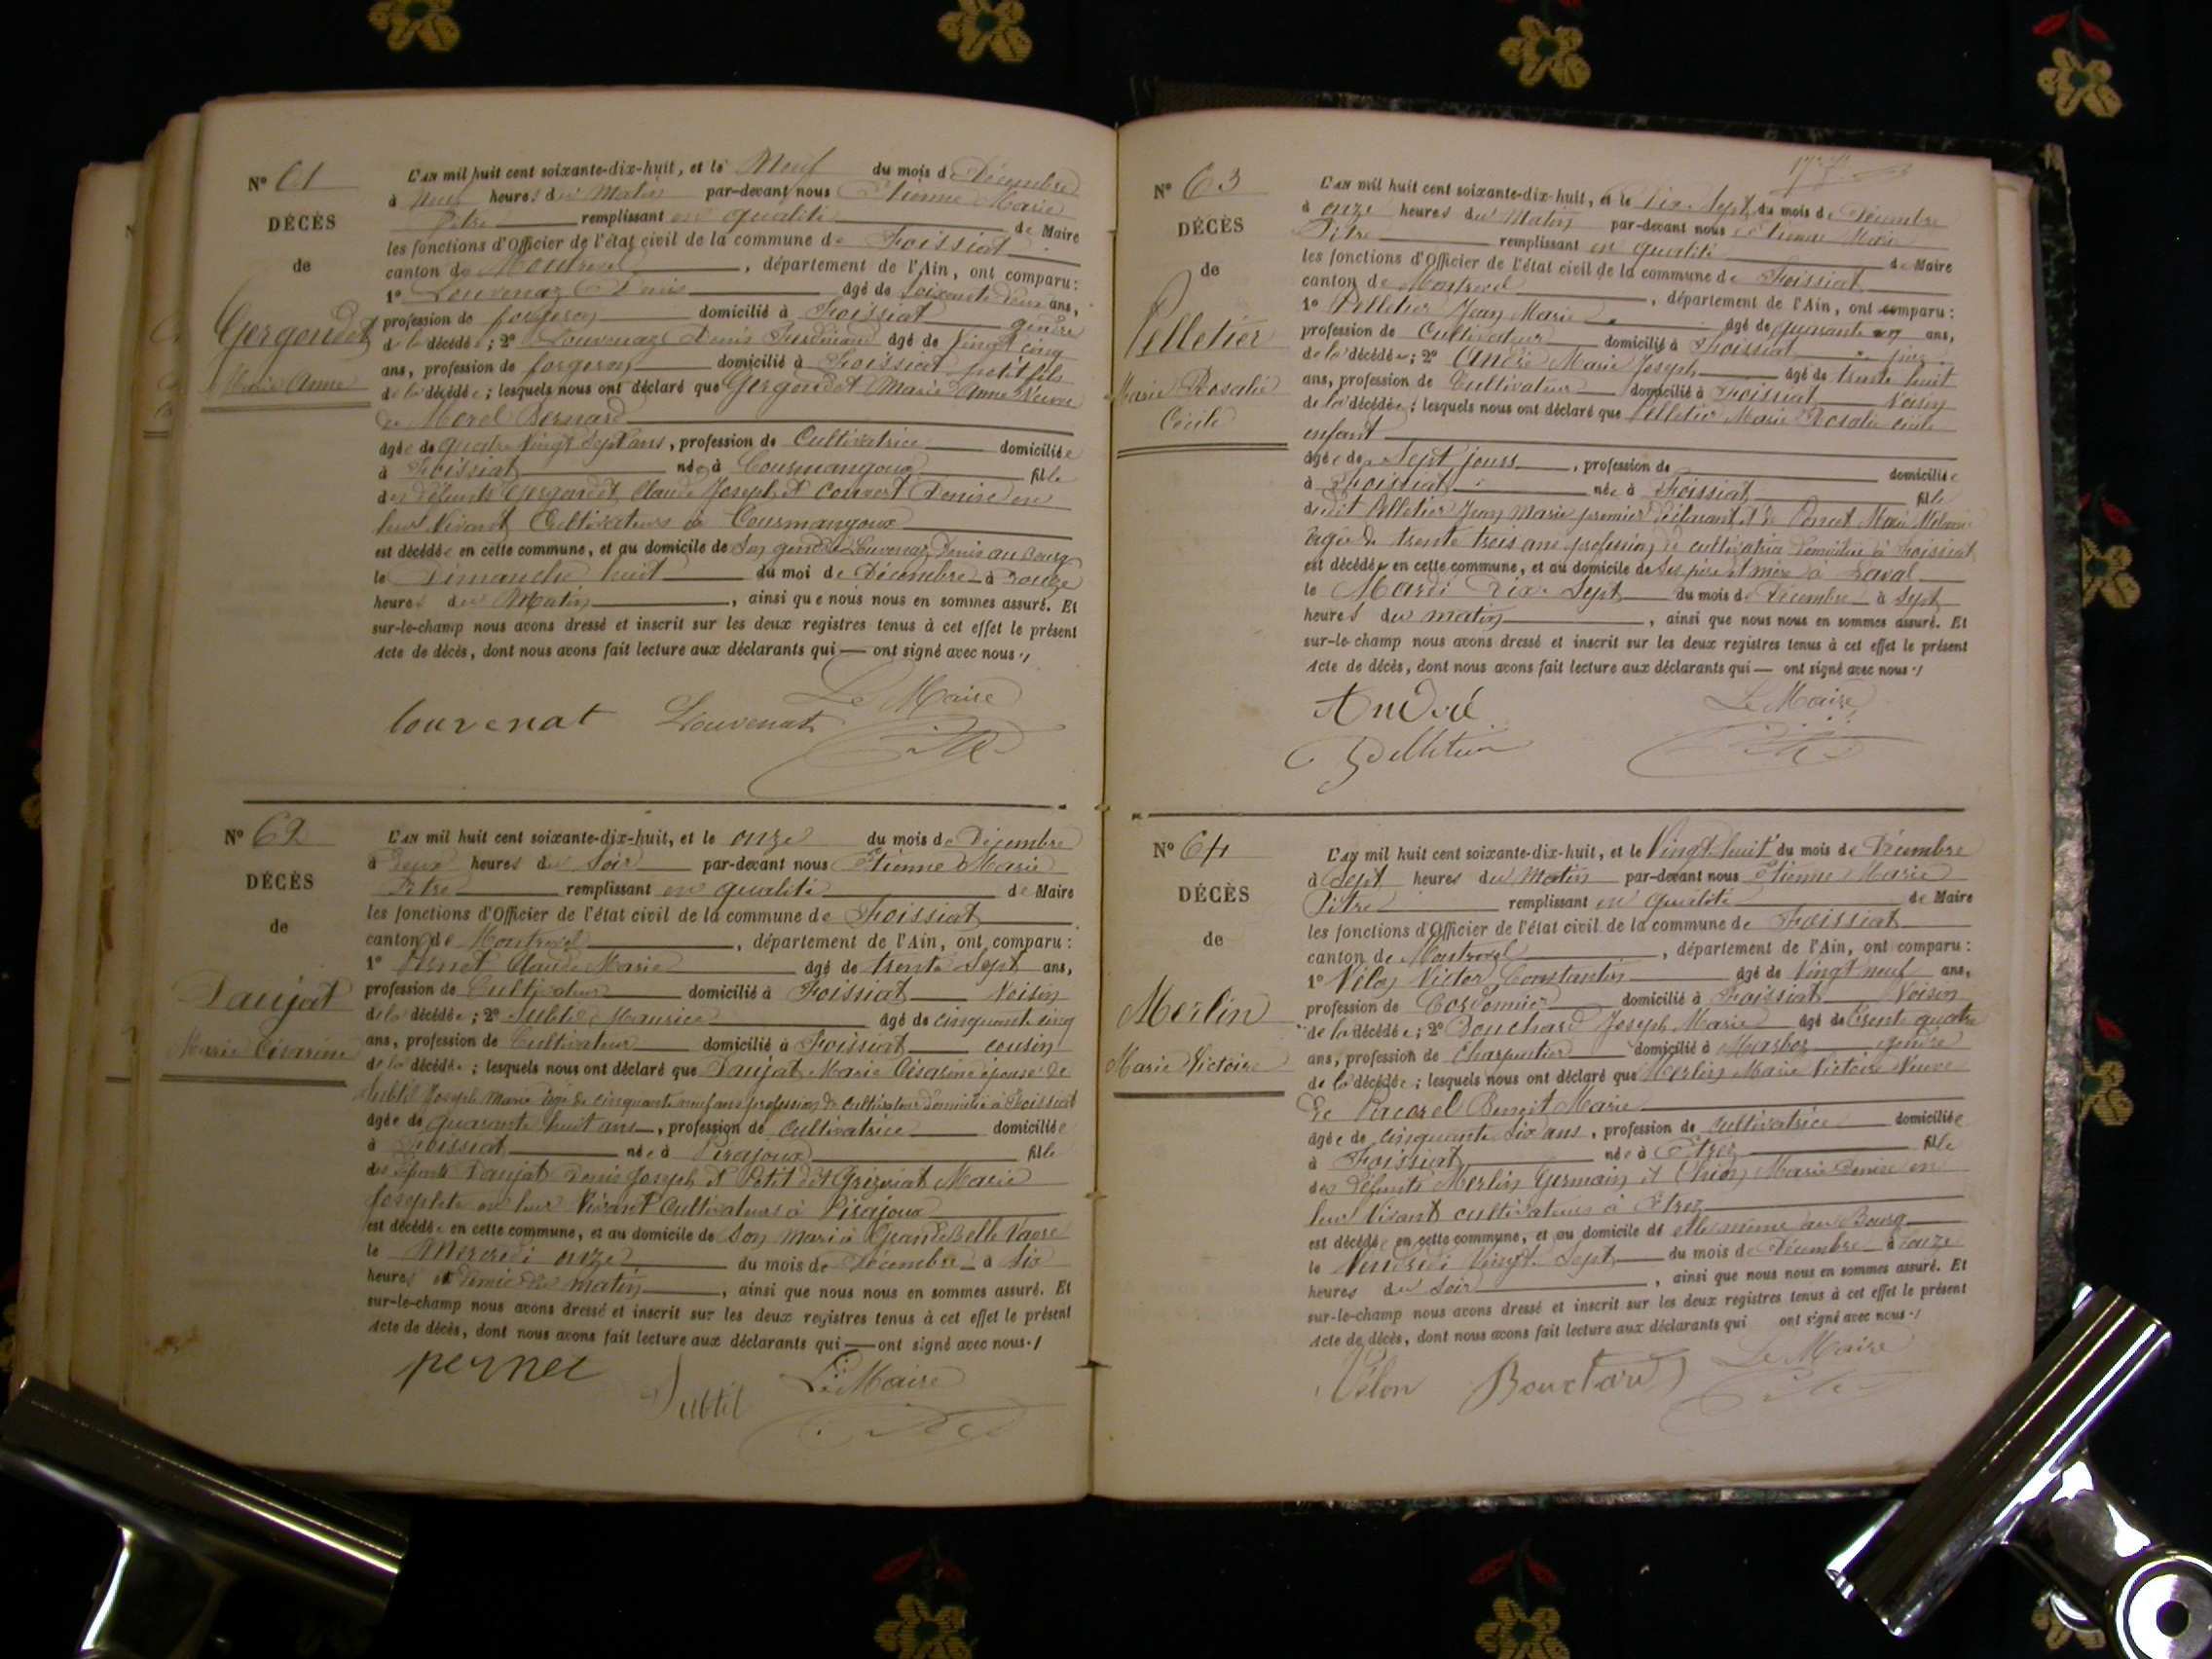 N° 61
DÉCÈS
de
Gergondet
Marie Anne
L'AN mil huit cent soixante-dix-huit, et le Neuf du mois de Décembre
à Neuf heures du Matin par-devant nous Etienne Marie
Pitre remplissant en qualité de Maire
les fonctions d'Officier de l'état civil de la commune de Foissiat
canton de Montrevel, département de l'Ain, ont comparu:
1° Louvenaz Denis âgé de soixante deux ans,
profession de forgeron domicilié à Foissiat gendre
de la décédée; 2° Louvenaz Denis Ferdinand âgé de vingt cinq
ans, profession de forgeron domicilié à Foissiat petit fils
de la décédée; lesquels nous ont déclaré que Gergondet Marie Anne Veuve
de Morel Bernard
âgée de quatre Vingt Sept ans, profession de Cultivatrice domiciliée
à Foissiat née à Courmangoux fille
des défunts Gergondet Claude Joseph et Convert Denise en
leur Vivant Cultivateurs à Courmangoux
est décédée en cette commune, et au domicile de son gendre Louvenaz Denis au Bourg
le Dimanche huit du moi de Décembre à onze
heures du Matin, ainsi que nous nous en sommes assuré. Et
sur-le-champ nous avons dressé et inscrit sur les deux registres tenus à cet effet le présent
Acte de décès, dont nous avons fait lecture aux déclarants qui — ont signé avec nous
Le Maire
louvenat Louvenat
N° 62
DÉCÈS
de
Daujat
Marie Césarine
L'AN mil huit cent soixante-dix-huit, et le onze du mois de Décembre
à Deux heures du Soir par-devant nous Etienne Marie
Pitre remplissant en qualité de Maire
les fonctions d'Officier de l'état civil de la commune de Foissiat
canton de Montrevel, département de l'Ain, ont comparu:
1° Pernet Claude Marie âgé de trente Sept ans,
profession de Cultivateur domicilié à Foissiat Voisin
de la décédée; 2° Subtil Maurice âgé de cinquante cinq
ans, profession de Cultivateur domicilié à Foissiat cousin
de la décédée; lesquels nous ont déclaré que Daujat Marie Césarine épouse de
Subtil Joseph Marie âgé de cinquante neuf ans profession de Cultivateur domicilié à Foissiat
âgée de quarante huit ans, profession de cultivatrice domiciliée
à Foissiat née à Pirajoux fille
des défunts Daujat Denis Joseph et Petit dit Grizeriat Marie
Josephte en leur Vivant Cultivateurs à Pirajoux
est décédée en cette commune, et au domicile de Son mari à Grande Belle Vavre
le Mercredi onze du mois de Décembre à Six
heures et demie du matin, ainsi que nous nous en sommes assuré. Et
sur-le-champ nous avons dressé et inscrit sur les deux registres tenus à cet effet le présent
Acte de décès, dont nous avons fait lecture aux déclarants qui — ont signé avec nous
pernet Subtil Le Maire
N° 63
DÉCÈS
de
Pelletier
Marie Rosalie
Cécile
L'AN mil huit cent soixante-dix-huit, et le Dix Sept du mois de Décembre
à onze heures du Matin par-devant nous Etienne Marie
Pitre remplissant en qualité de Maire
les fonctions d'Officier de l'état civil de la commune de Foissiat
canton de Montrevel, département de l'Ain, ont comparu:
1° Pelletier Jean Marie âgé de quarante ans,
profession de Cultivateur domicilié à Foissiat père
de la décédée; 2° André Marie Joseph âgé de trente huit
ans, profession de Cultivateur domicilié à Foissiat Voisin
de la décédée; lesquels nous ont déclaré que Pelletier Marie Rosalie Cécile
enfant
âgée de Sept jours, profession de domiciliée
à Foissiat née à Foissiat fille
du dit Pelletier Jean Marie premier déclarant et de Poncet Marie Mélanie
âgée de trente trois ans profession de cultivatrice domiciliée à Foissiat
est décédée en cette commune, et au domicile de ses père et mère à Laval
le Mardi Dix Sept du mois de Décembre à Sept
heures du matin, ainsi que nous nous en sommes assuré. Et
sur-le-champ nous avons dressé et inscrit sur les deux registres tenus à cet effet le présent
Acte de décès, dont nous avons fait lecture aux déclarants qui — ont signé avec nous
André Le Maire
Pelletier
N° 64
DÉCÈS
de
Merlin
Marie Victoire
L'AN mil huit cent soixante-dix-huit, et le Vingt huit du mois de Décembre
à Sept heures du Matin par-devant nous Etienne Marie
Pitre remplissant en qualité de Maire
les fonctions d'Officier de l'état civil de la commune de Foissiat
canton de Montrevel, département de l'Ain, ont comparu:
1° Vélon Victor Constantin âgé de Vingt neuf ans,
profession de Cordonnier domicilié à Foissiat Voisin
de la décédée; 2° Bouchard Joseph Marie âgé de trente quatre
ans, profession de Charpentier domicilié à Marboz gendre
de la décédée; lesquels nous ont déclaré que Merlin Marie Victoire Veuve
de Pacorel Benoit Marie
âgée de cinquante six ans, profession de cultivatrice domiciliée
à Foissiat née à Etrez fille
des défunts Merlin Germain et Chion Marie Denise en
leur Vivant cultivateurs à Etrez
est décédée en cette commune, et au domicile de elle même au Bourg
le Vendredi Vingt Sept du mois de Décembre à onze
heures du soir, ainsi que nous nous en sommes assuré. Et
sur-le-champ nous avons dressé et inscrit sur les deux registres tenus à cet effet le présent
Acte de décès, dont nous avons fait lecture aux déclarants qui ont signé avec nous
Vélon Bouchard Le Maire